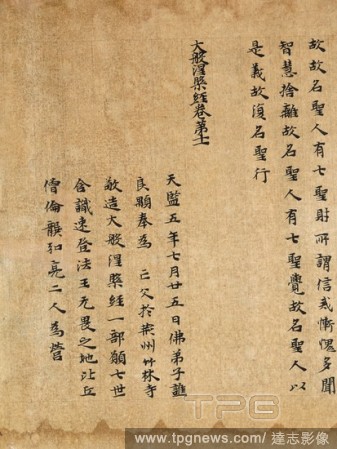 故故名聖人有七聖財所謂信戒慚愧多聞
智慧捨離故名聖人有七聖覺故名聖人以
是義故復名聖行
大般涅槃經卷第十一
天監五年七月廿五日佛弟子譙
良顒奉為亡父於荊州竹林寺
敬造大般涅槃經一部願七世
含識速登法王无畏之地比丘
僧倫龔和亮二人為營
TPG
www.tpgnews.com/ 達志影像